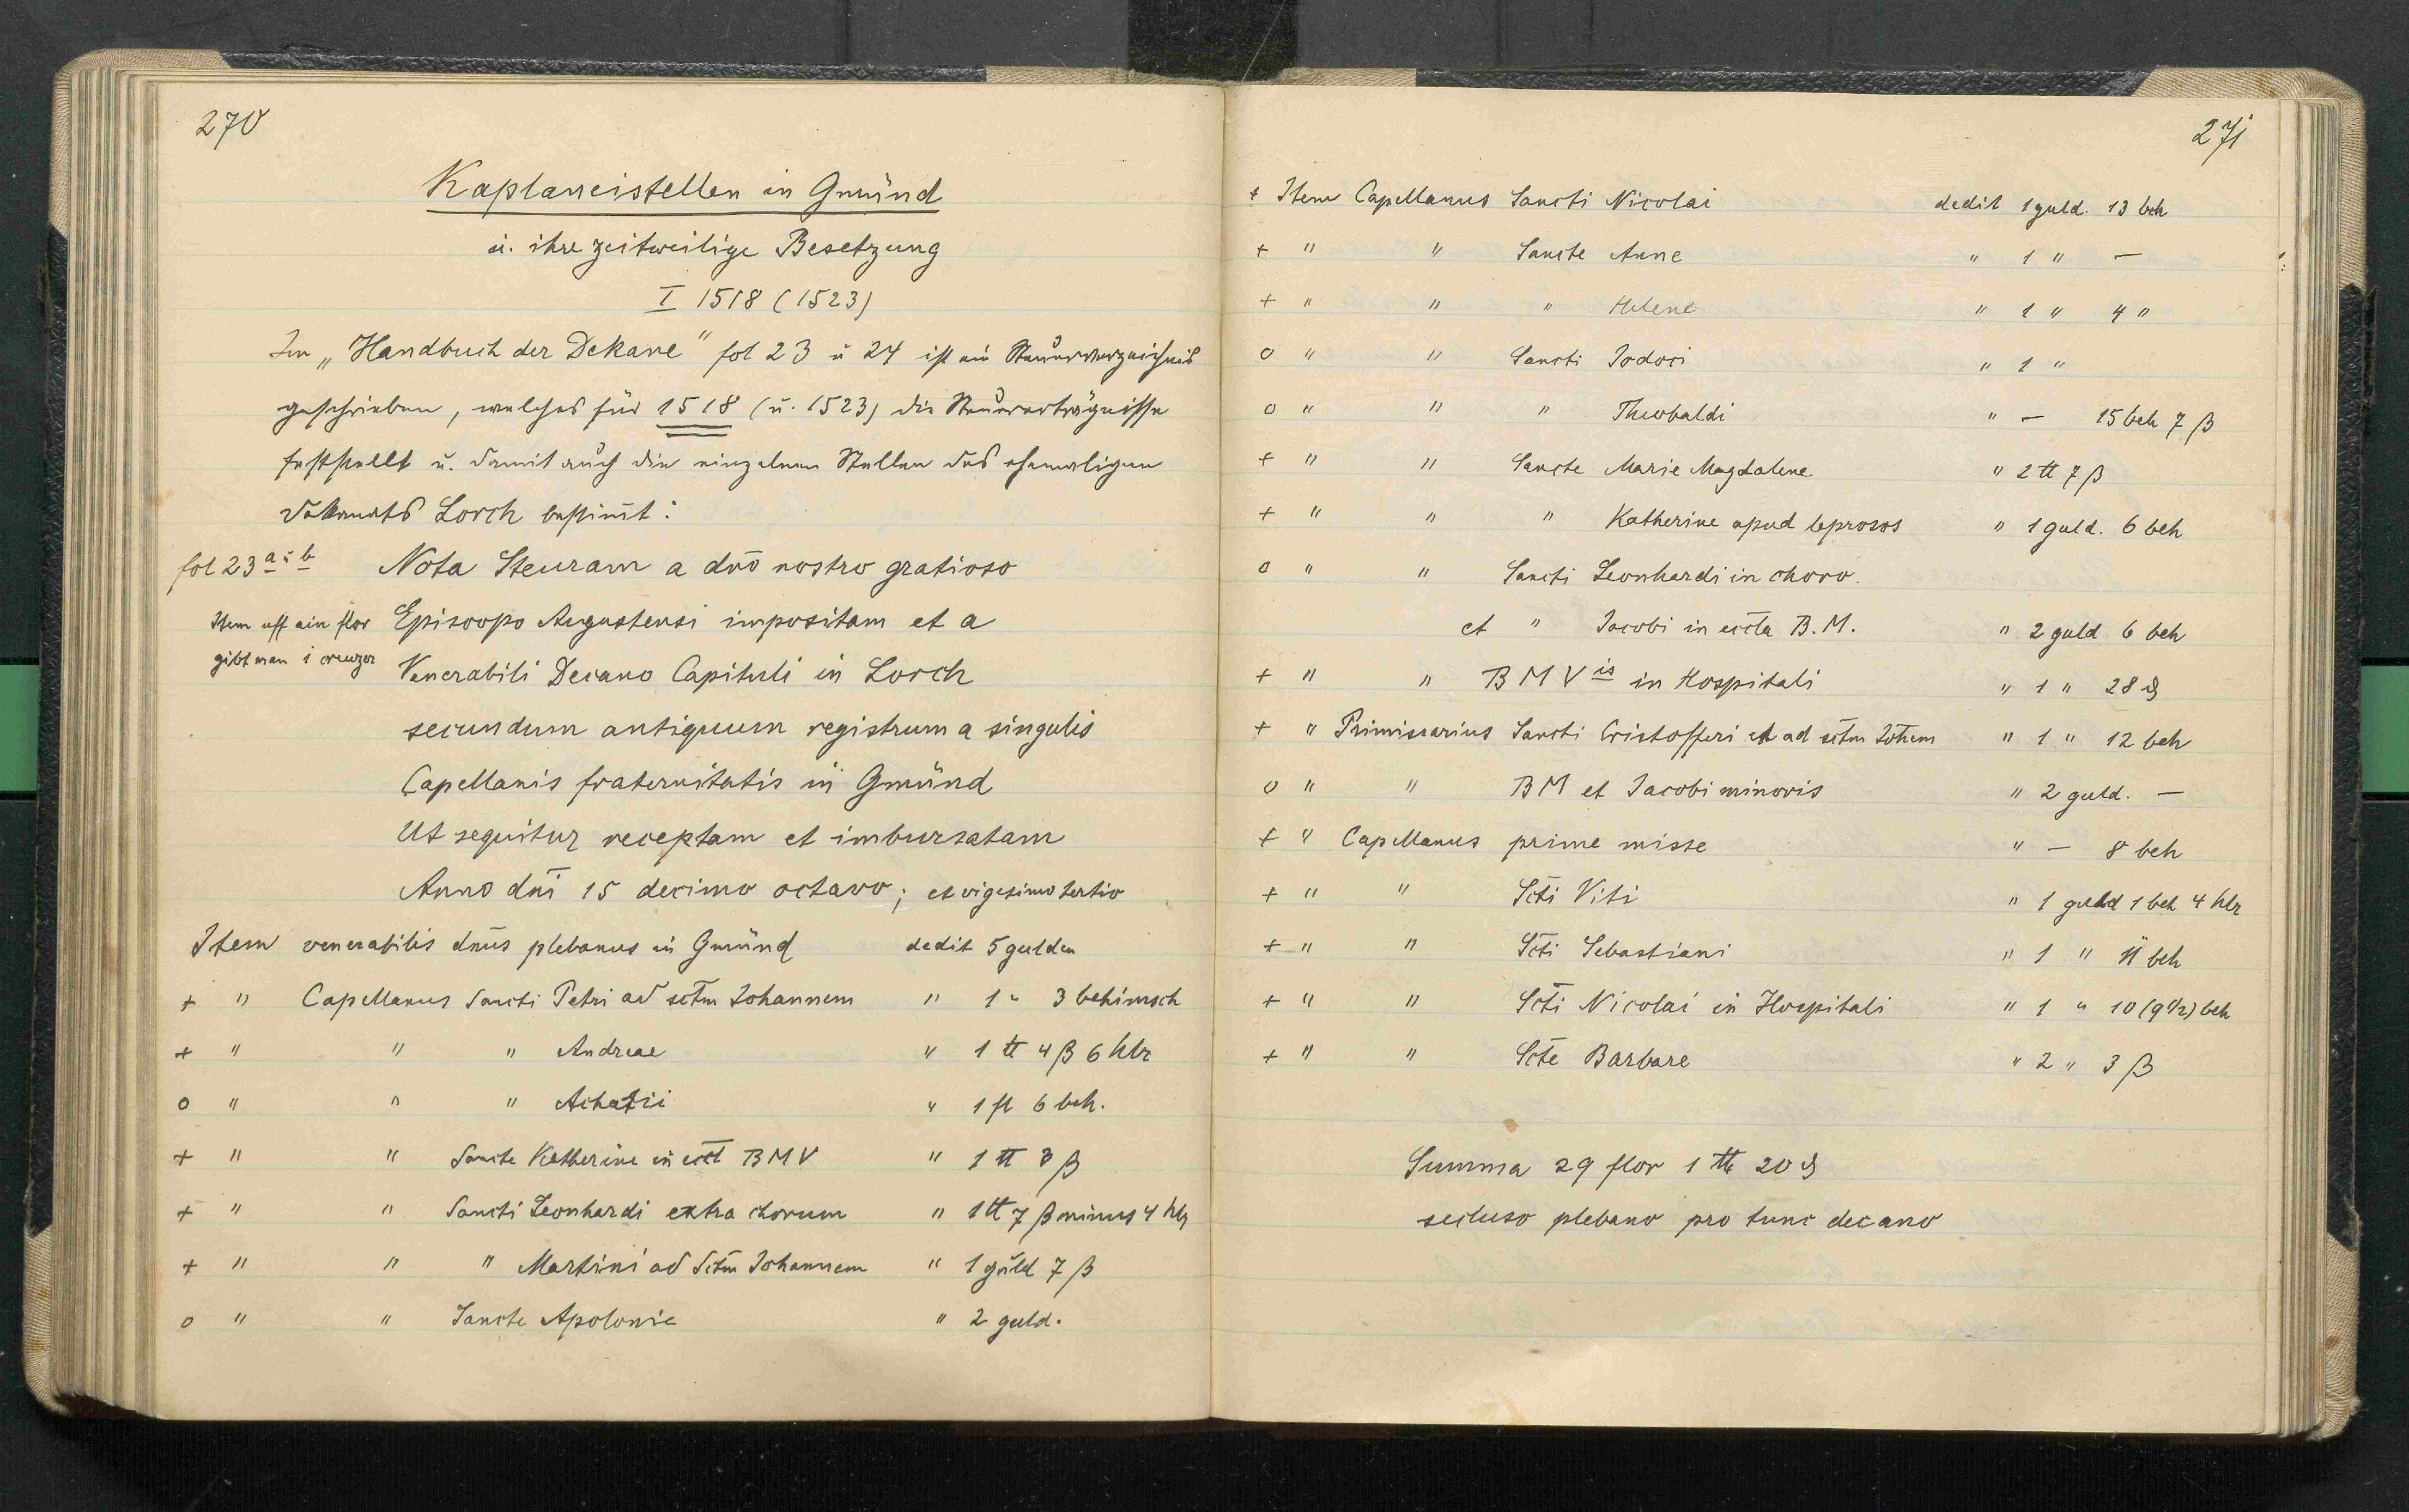 270
Kaplaneistellen in Gmünd
u. ihre zeitweilige Besetzung
I 1518 (1523)
Im „Handbuch der Dekane" fol 23 u 24 ist ein Steuerverzeichnis
geschrieben, welches für 1518 (u. 1523) die Steuererträgnisse
feststellt u. damit auch die einzelnen Stellen des ehemaligen
Dekanats Lorch bestimt:
fol 23 a u b Nota Steuram a dno nostro gratioso
Item uff ein flor Episcopo Augustensi impositam et a
gibt man i creuzer Venerabili Decano Capituli in Lorch
secundum antiquum registrum a singulis
Capellanis fraternitatis in Gmünd
Ut sequitur receptam et imbursatam
Anno dni 15 decimo octavo; et vigesimo tertio
Item venerabilis dnus plebanus in Gmünd dedit 5 gulden
+ " Capellanus Sancti Petri ad sctm Johannem " 1 " 3 behimsch
+ " " " Andreae " 1 ℔ 4 β 6 hlr
o " " " Achatii " 1 fl 6 beh.
+ " " Sancte Katherine in eccl BMV " 1 ℔ 3 β
+ " " Sancti Leonhardi extra chorum " 1 ℔ 7 β minus 4 hlr
+ " " " Martini ad Sctm Johannem " 1 guld 7 β
o " " Sancte Apolonie " 2 guld.
271
+ Item Capellanus Sancti Nicolai dedit 1 guld. 13 beh
+ " " Sancte Anne " 1 " —
+ " " " Helene " 1 " 4 "
o " " Sancti Jodoci " 1 "
o " " " Theobaldi " — 15 beh 7 β
+ " " Sancte Marie Magdalene " 2 ℔ 7 β
+ " " " Katherine apud leprosos " 1 guld. 6 beh
o " " Sancti Leonhardi in choro.
et " Jacobi in eccla B.M. " 2 guld 6 beh
+ " " B M V is in Hospitali " 1 " 28 ₰
+ " Primissarius Sancti Cristofferi et ad sctm Johem " 1 " 12 beh
o " " BM et Jacobi minoris " 2 guld. —
+ " Capellanus prime misse " — 8 beh
+ " " Scti Viti " 1 guld 1 beh 4 hlr
+ " " Scti Sebastiani " 1 " 11 beh
+ " " Scti Nicolai in Hospitali " 1 " 10 (9 1/2) beh
+ " " Scte Barbare " 2 " 3 β
Summa 29 flor 1 ℔ 20 ₰
secluso plebano pro tunc decano